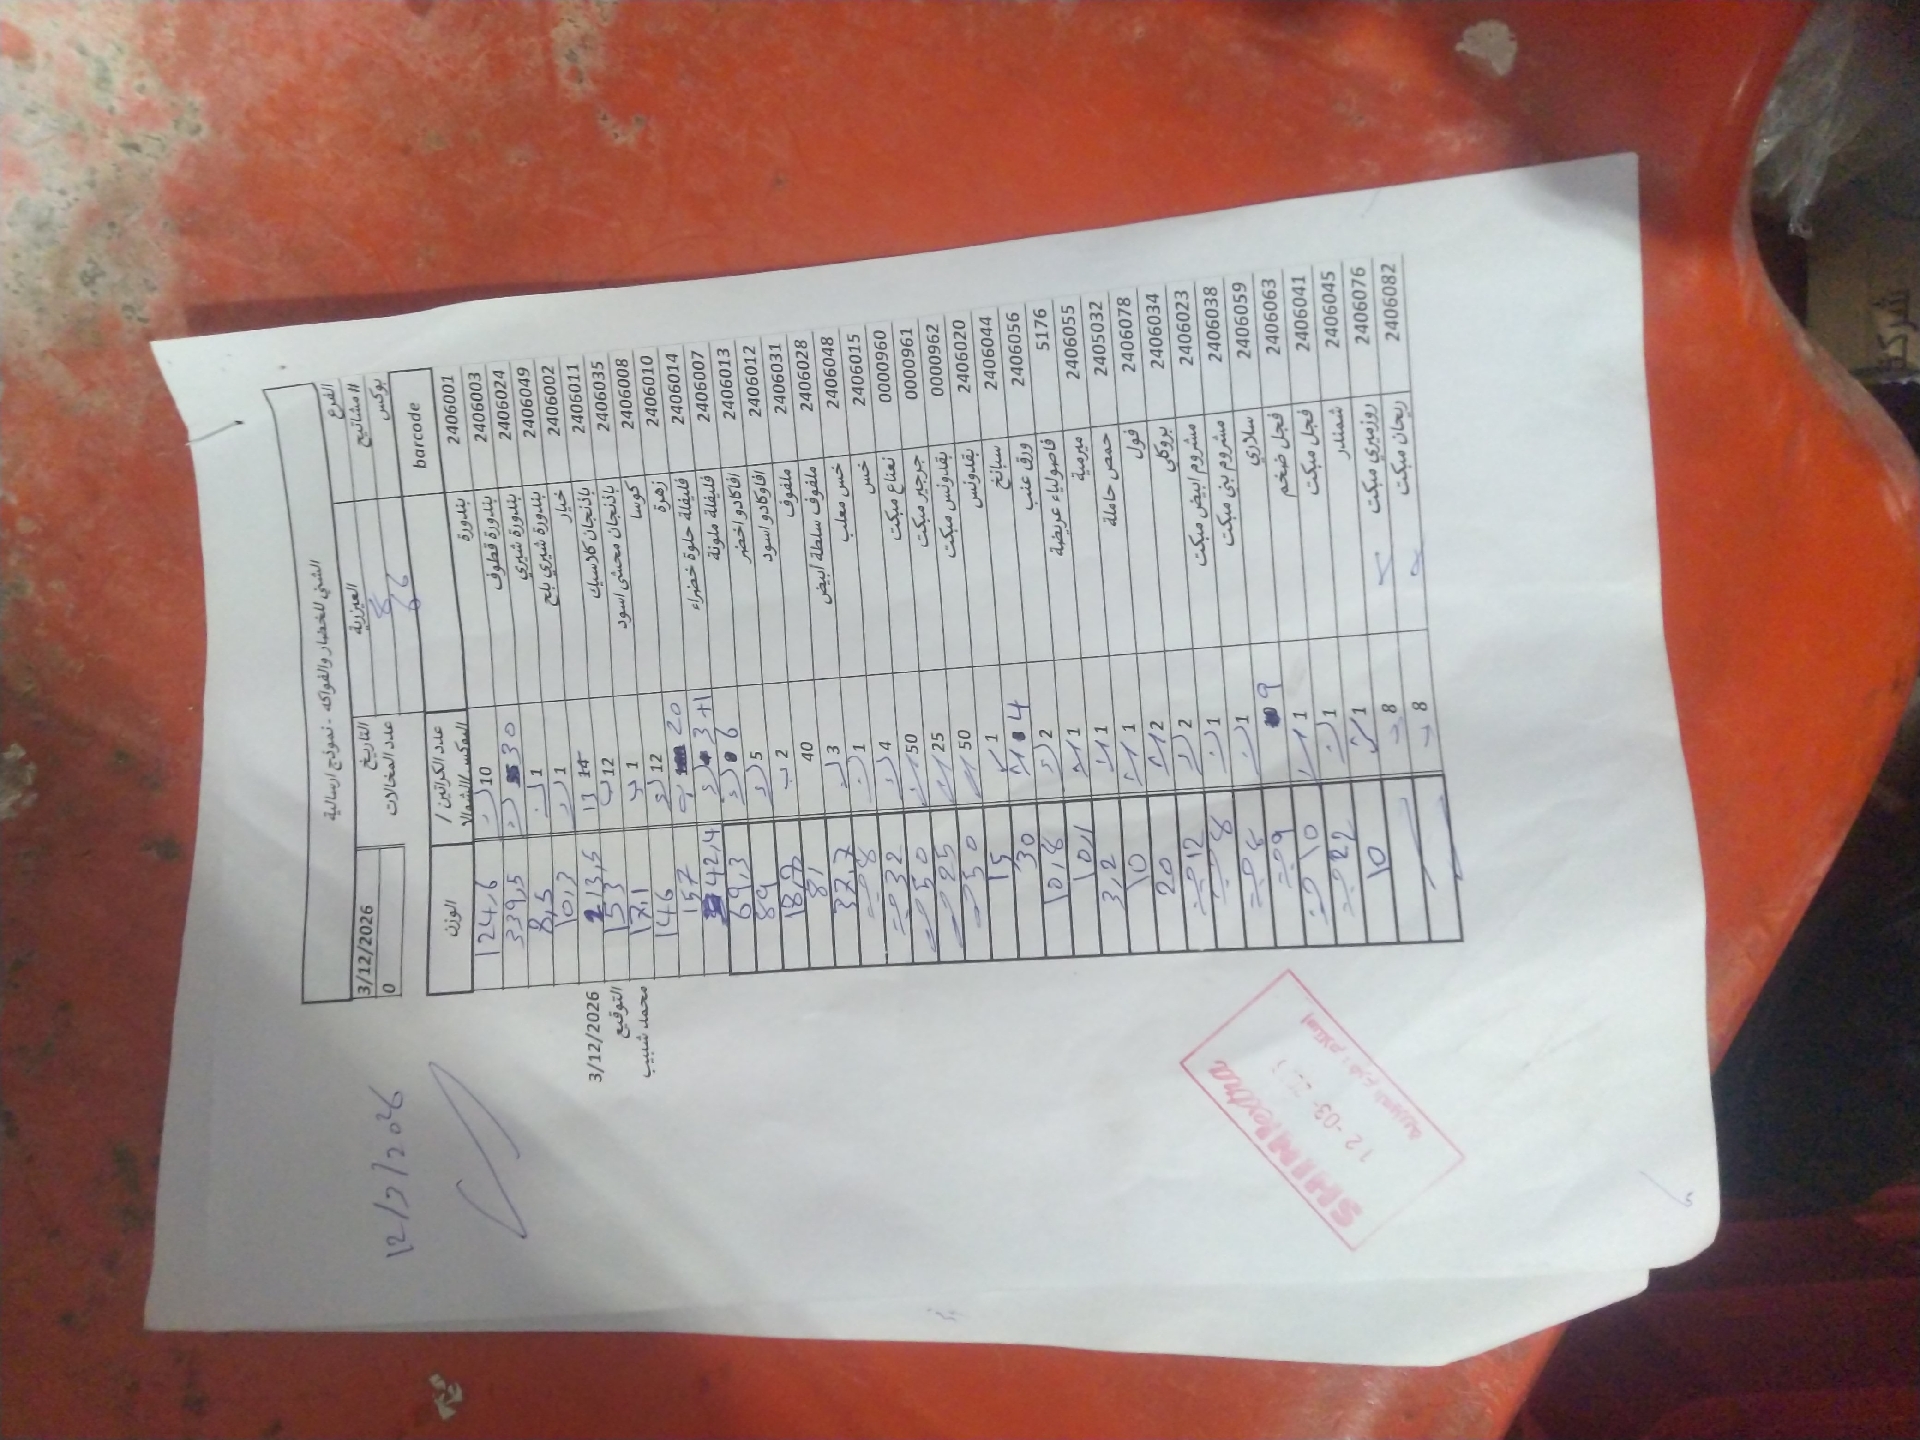 الشني للخضار والفواكه - نموذج ارسالية
الفرع العيزرية التاريخ 3/12/2026
المشاتيح عدد المخالات 0
بوكس 66
barcode عدد الكراتين / البوكس/الشوال الوزن
2406001 بندورة 10 124,6
2406003 بندورة قطوف 30 339,5
2406024 بندورة شيري 1 8,5
2406049 بندورة شيري بلح 1 10,3
2406002 خيار 14 213,5
2406011 باذنجان كلاسيك 12 153
2406035 باذنجان محشي اسود 1 17,1
2406008 كوسا 12 146
2406010 زهرة 20 157
2406014 فليفلة حلوة خضراء 3+1 42,4
2406007 فليفلة ملونة 6 69,3
2406013 افاكادو اخضر 5 89
2406012 افاوكادو اسود 2 18,7
2406031 ملفوف 40 81
2406028 ملفوف سلطة ابيض 3 37,7
2406048 خس معلب 1 8
2406015 خس 4 32
0000960 نعناع مبكت 50 50
0000961 جرجير مبكت 25 25
0000962 بقدونس مبكت 50 50
2406020 بقدونس 1 15
2406044 سبانخ 4 30
2406056 ورق عنب 2 10,8
5176 فاصولياء عريضة 1 10,1
2406055 ميرمية 1 3,2
2405032 حمص حاملة 1 10
2406078 فول 2 20
2406034 بروكلي 2 12
2406023 مشروم ابيض مبكت 1 8
2406038 مشروم بني مبكت 1 8
2406059 سلاري 9 9
2406063 فجل ضخم 1 10
2406041 فجل مبكت 1 22
2406045 شمندر 1 10
2406076 روزميري مبكت 8
2406082 ريحان مبكت 8
3/12/2026
التوقيع
محمد شبيب
12/3/2026
SHINI extra
12-03-
استلام فرع العيزرية